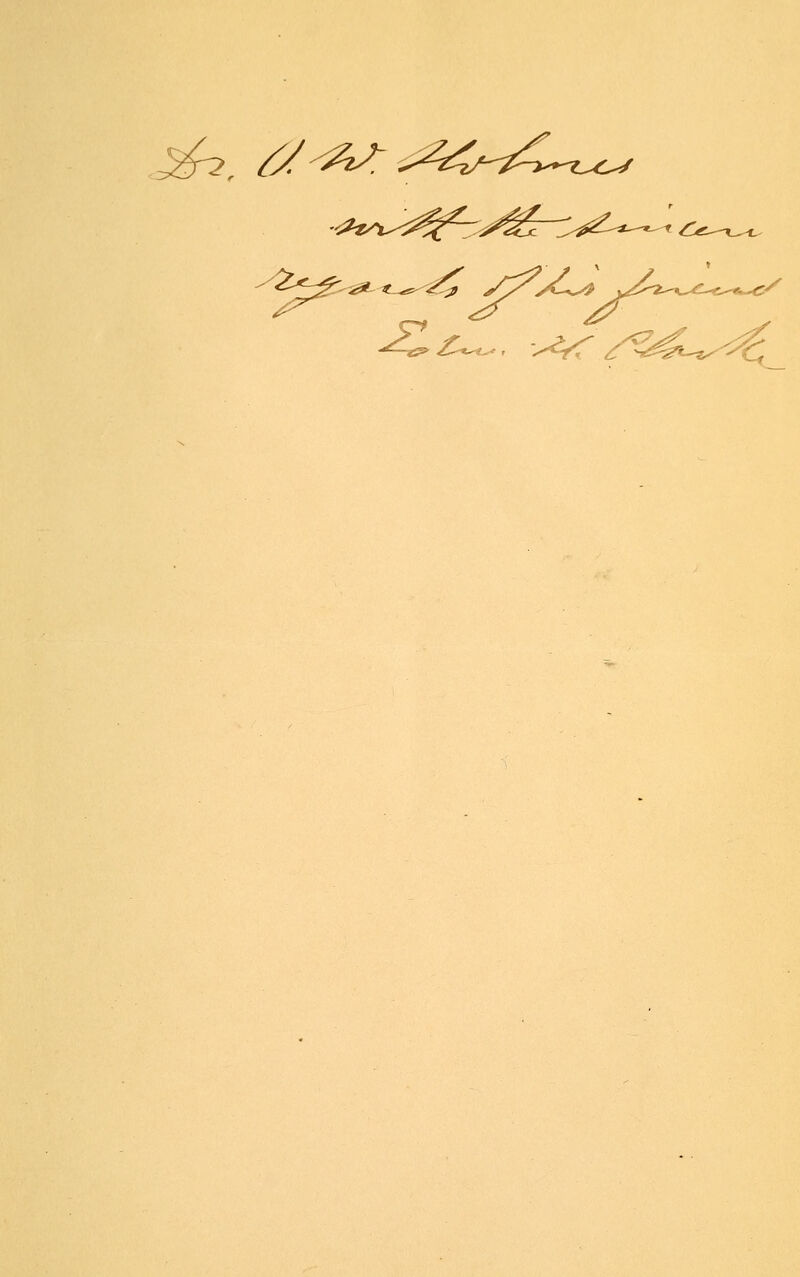 Dr. O. W. Holmes
with the sincere
regards of his friend
Edw. H. Clarke